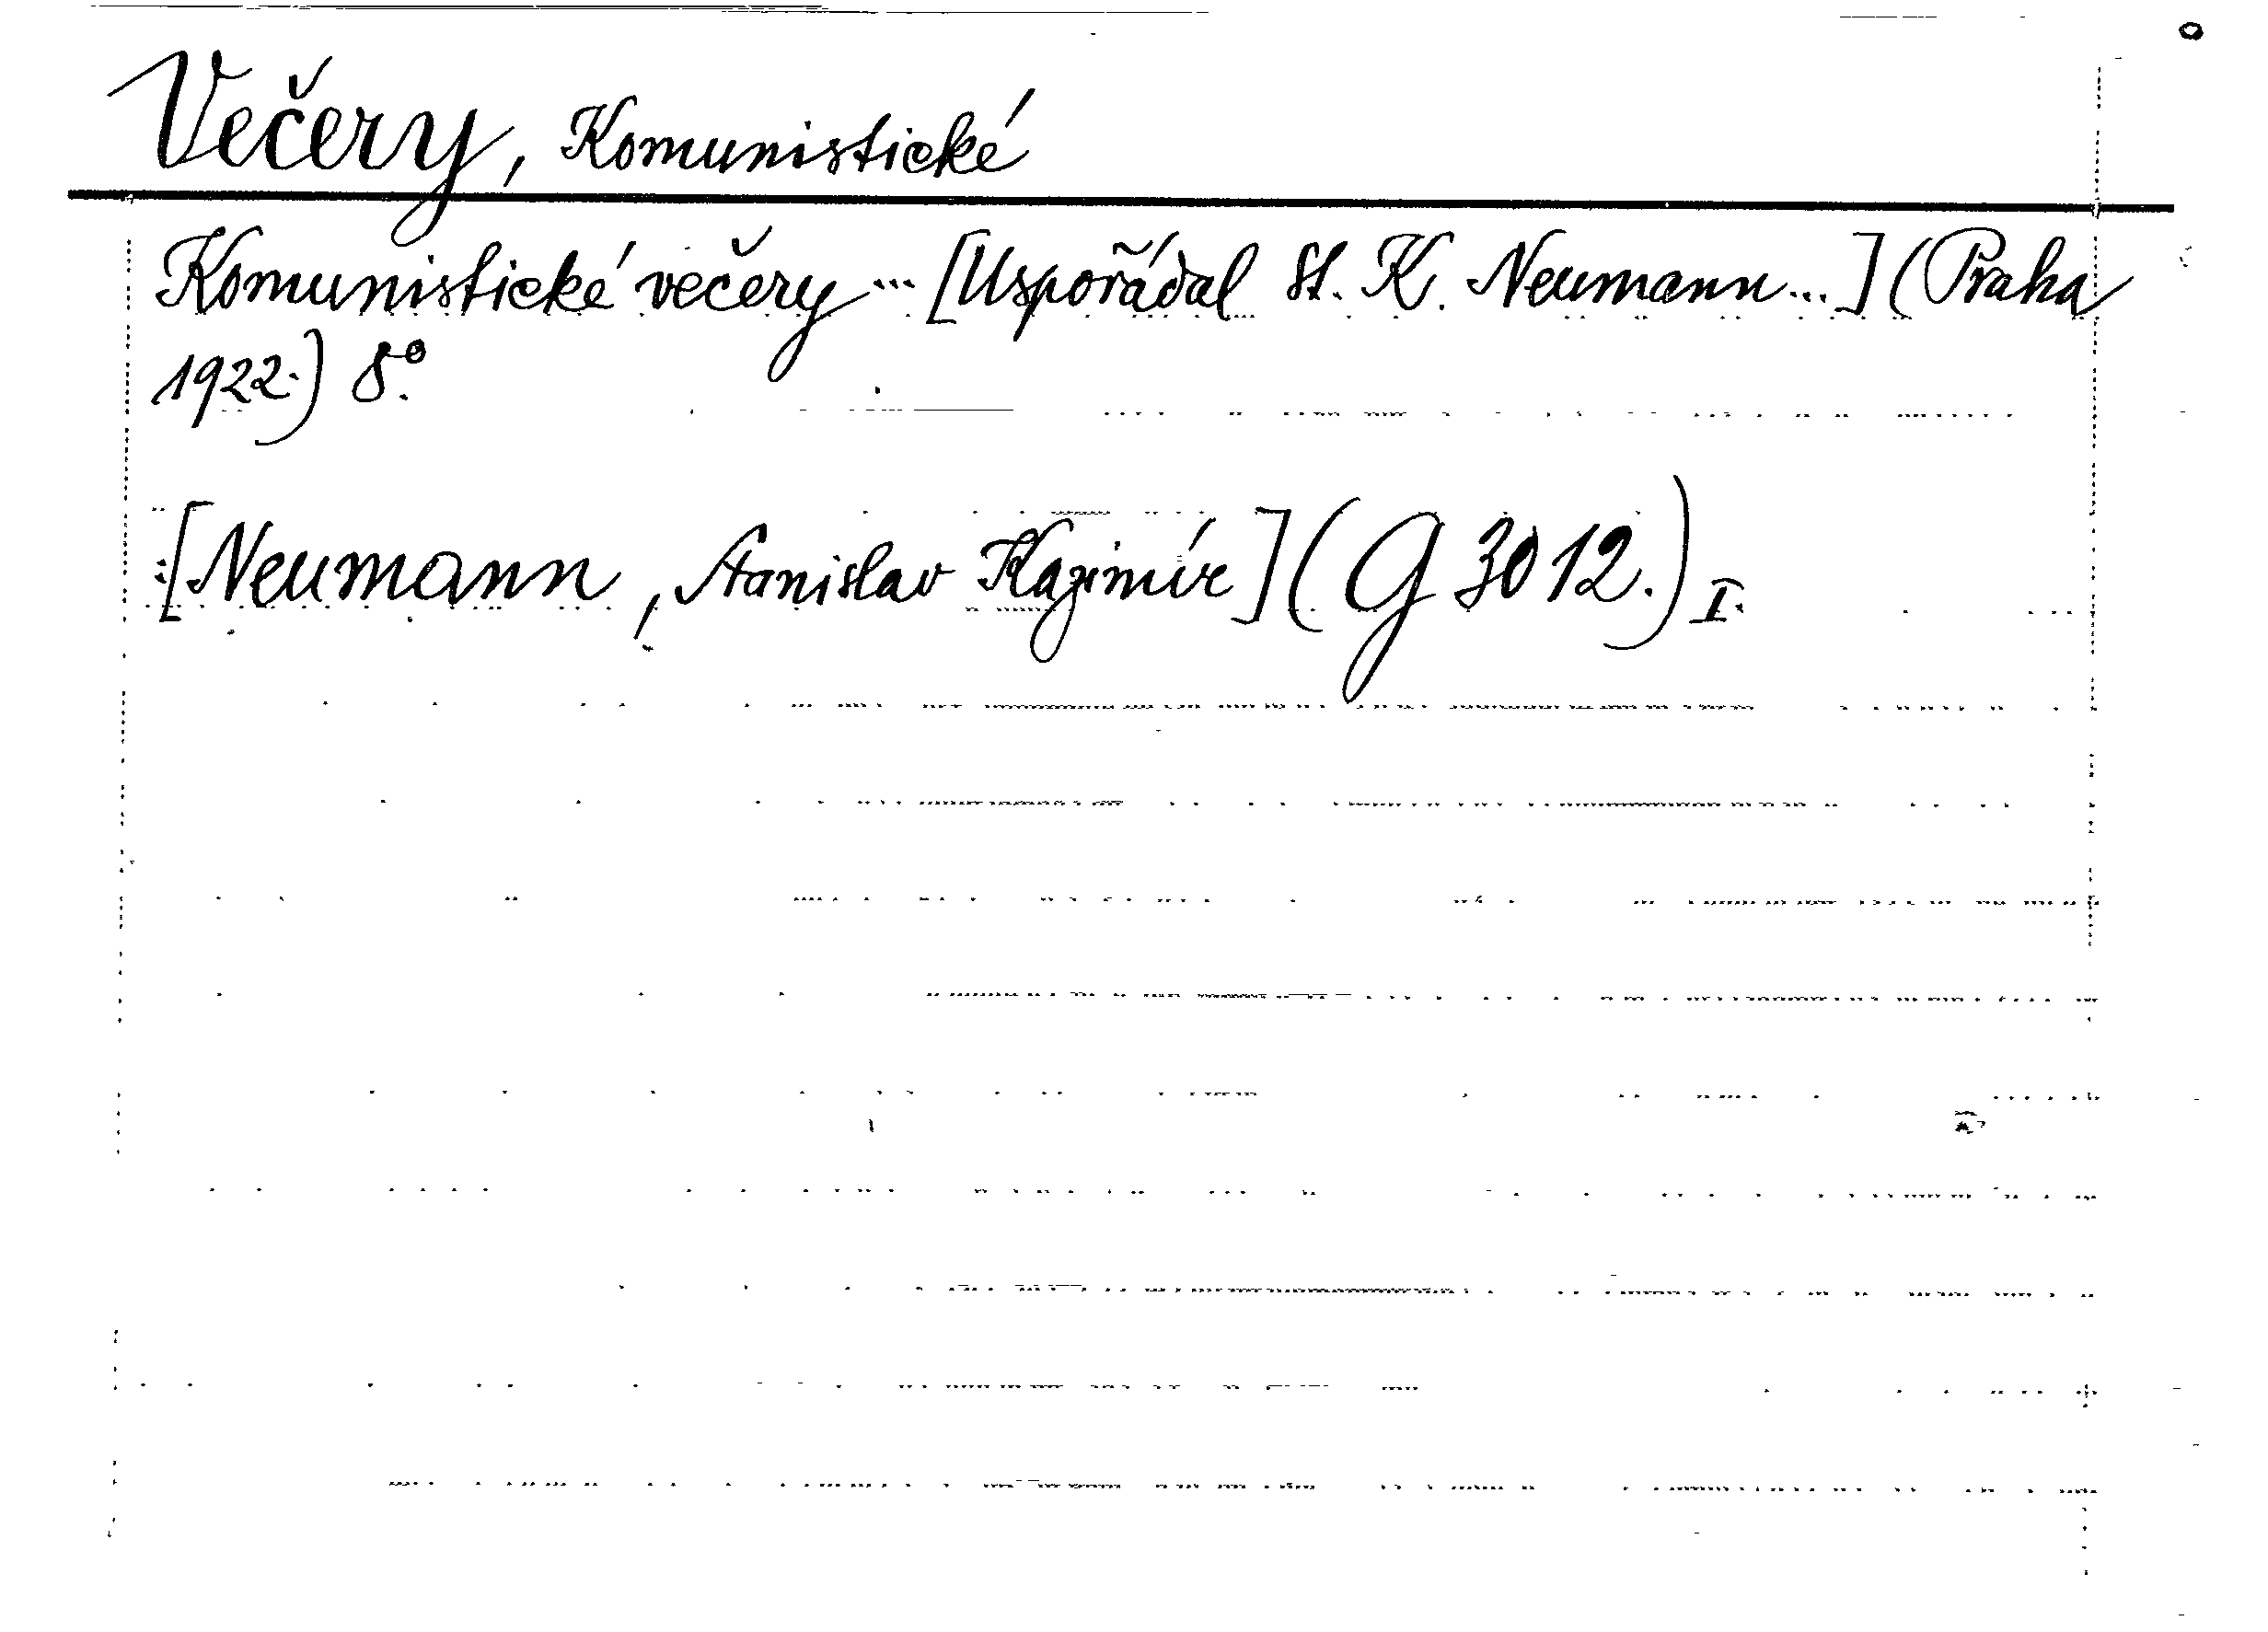 Večery, Komunistické
Komunistické večery ... [Uspořádal St. K. Neumann ...] (Praha
1922.) 8º.
[Neumann, Stanislav Kazimír] (G 3012.) I.